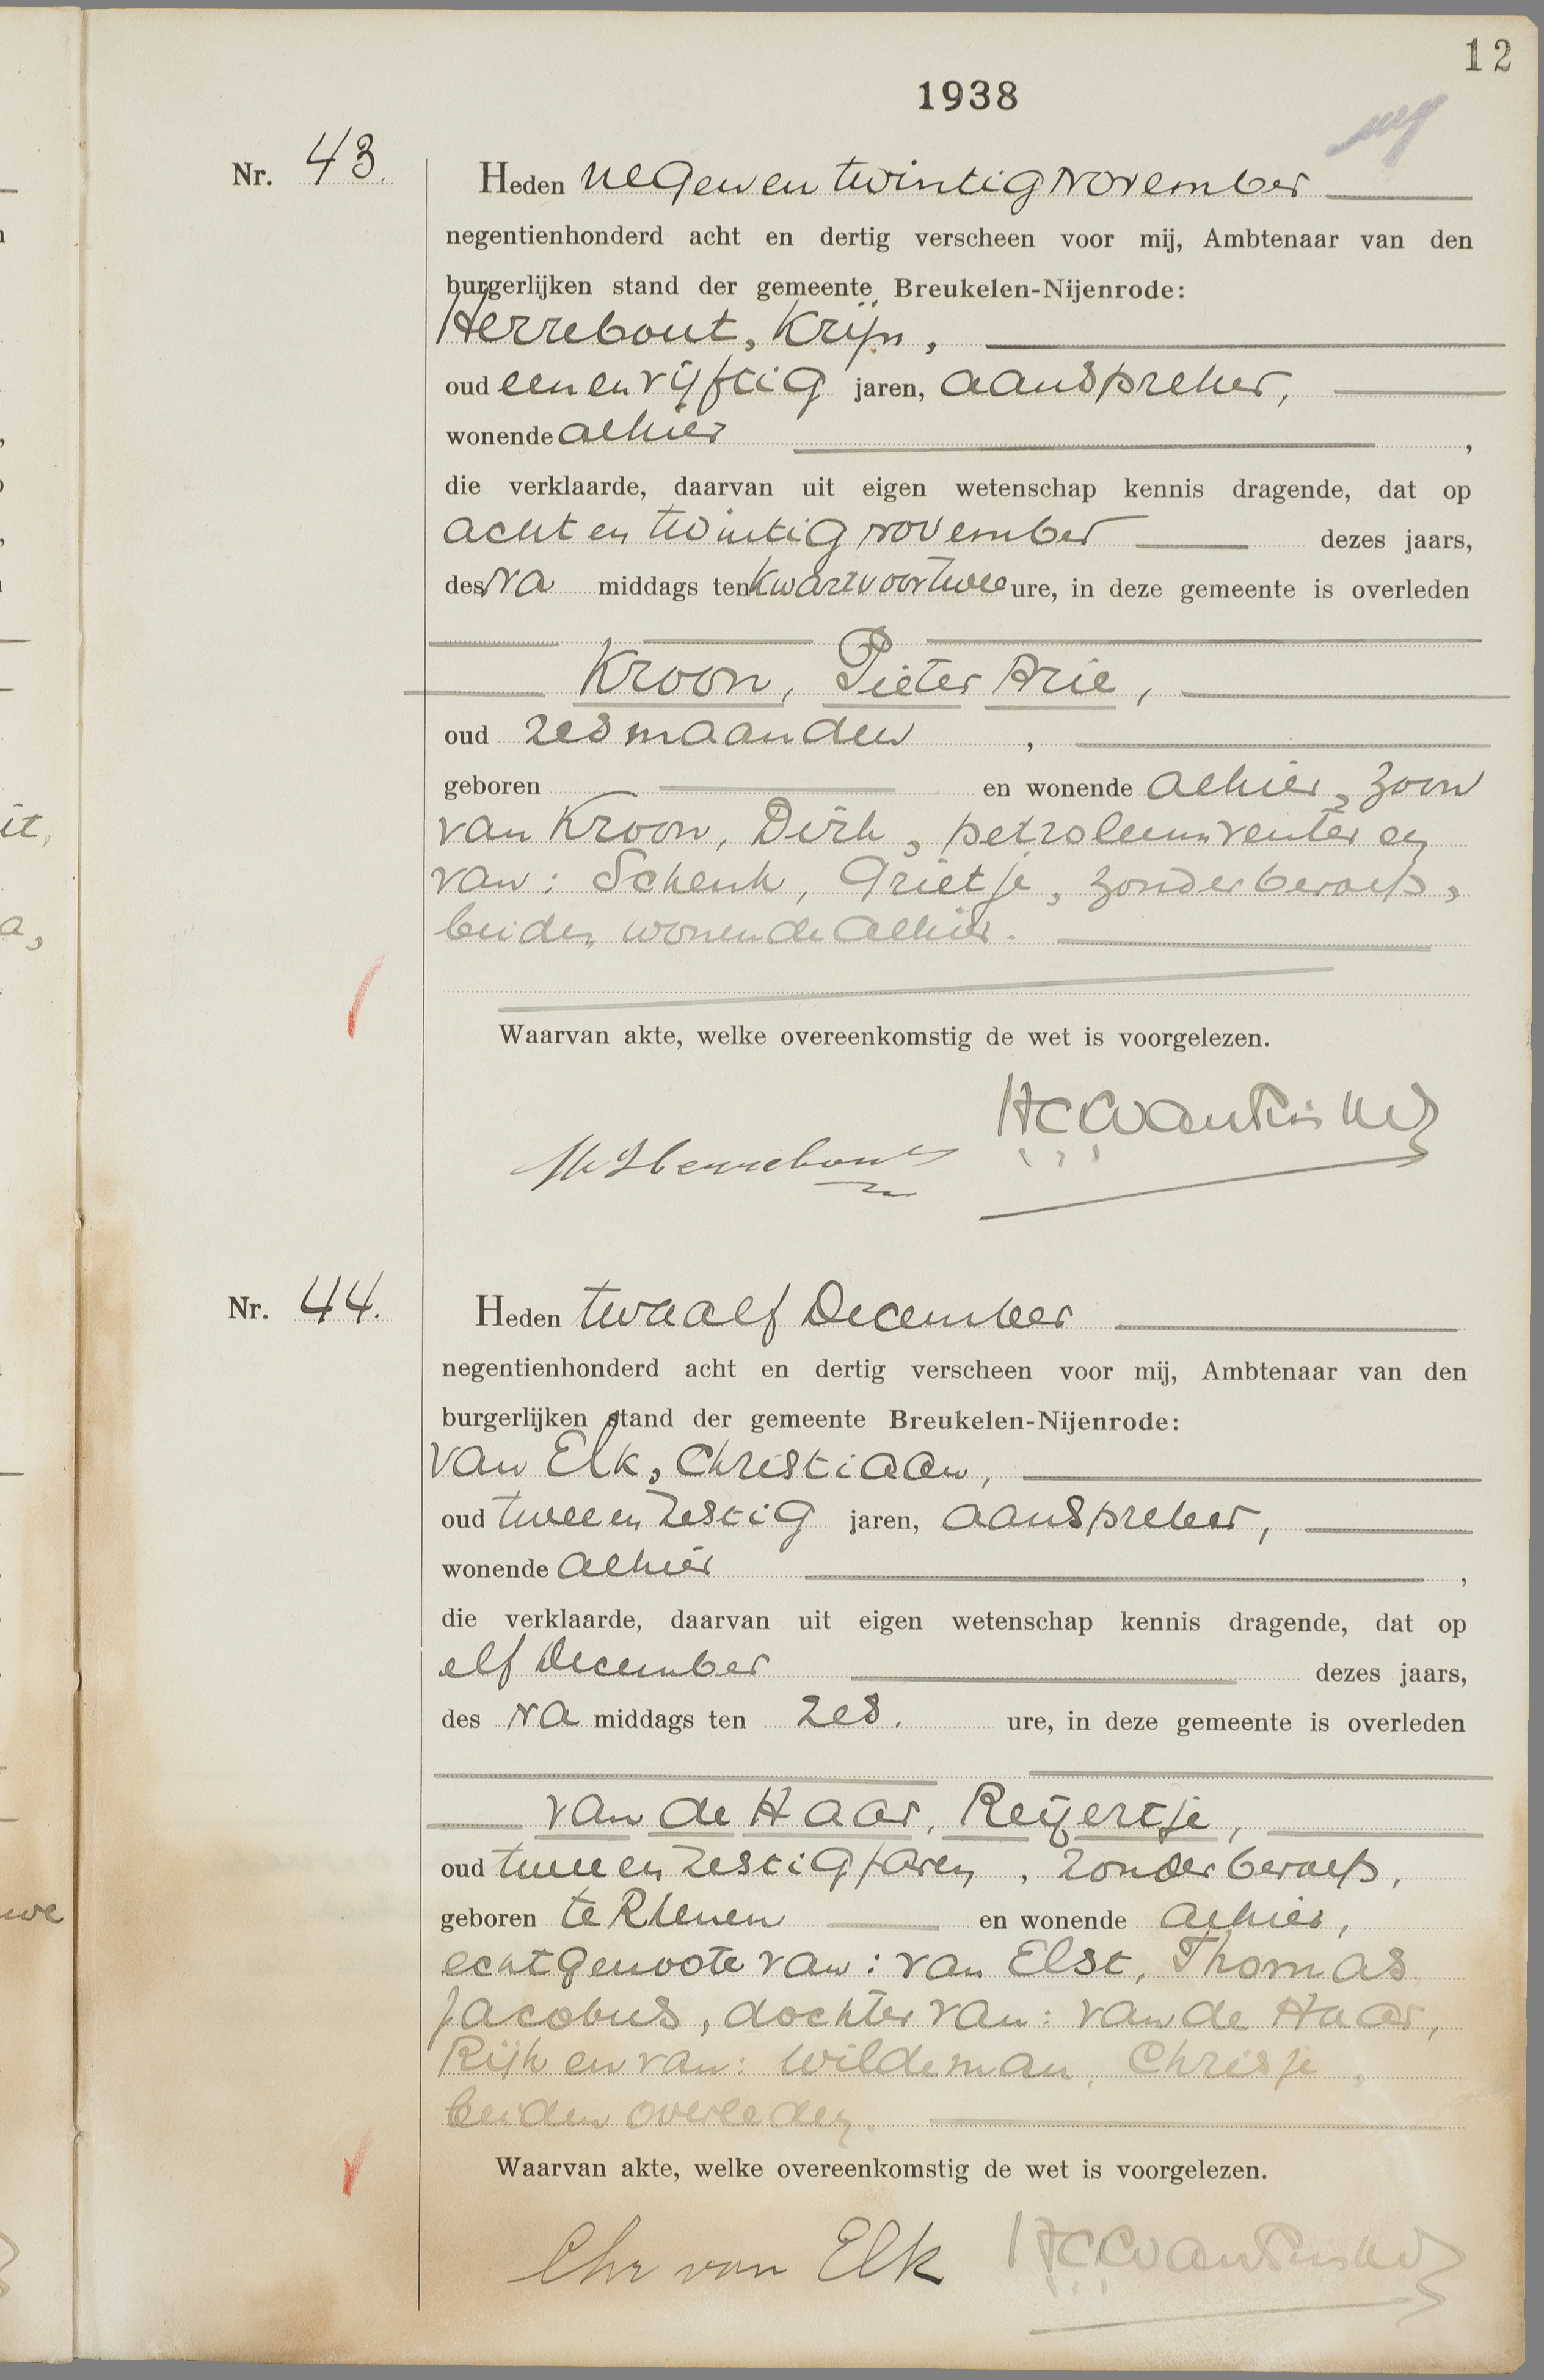 12
1938
Nr. 43.
Heden negen en twintig november
negentienhonderd acht en dertig verscheen voor mij, Ambtenaar van den
burgerlijken stand der gemeente Breukelen-Nijenrode:
Herrebout, Krijn,
oud een en vijftig jaren, aanspreker,
wonende alhier ,
die verklaarde, daarvan uit eigen wetenschap kennis dragende, dat op
acht en twintig november dezes jaars,
des na middags ten kwart voor twee ure, in deze gemeente is overleden
Kroon, Pieter Arie,
oud zes maanden ,
geboren en wonende alhier, zoon
van Kroon, Dirk, petroleumventer en
van: Schenk, Grietje, zonder beroep,
beiden wonende alhier.
Waarvan akte, welke overeenkomstig de wet is voorgelezen.
Herrebout
Nr. 44.
Heden twaalf December
negentienhonderd acht en dertig verscheen voor mij, Ambtenaar van den
burgerlijken stand der gemeente Breukelen-Nijenrode:
van Elk, Christiaan,
oud twee en zestig jaren, aanspreker,
wonende alhier ,
die verklaarde, daarvan uit eigen wetenschap kennis dragende, dat op
elf December dezes jaars,
des na middags ten zes. ure, in deze gemeente is overleden
van de Haar, Reijertje,
oud twee en zestig jaren, zonder beroep,
geboren te Rhenen en wonende alhier,
echtgenoote van: van Elst, Thomas
Jacobus, dochter van: van de Haar,
Rijk en van: Wildeman, Chrisje,
beiden overleden.
Waarvan akte, welke overeenkomstig de wet is voorgelezen.
Chr van Elk